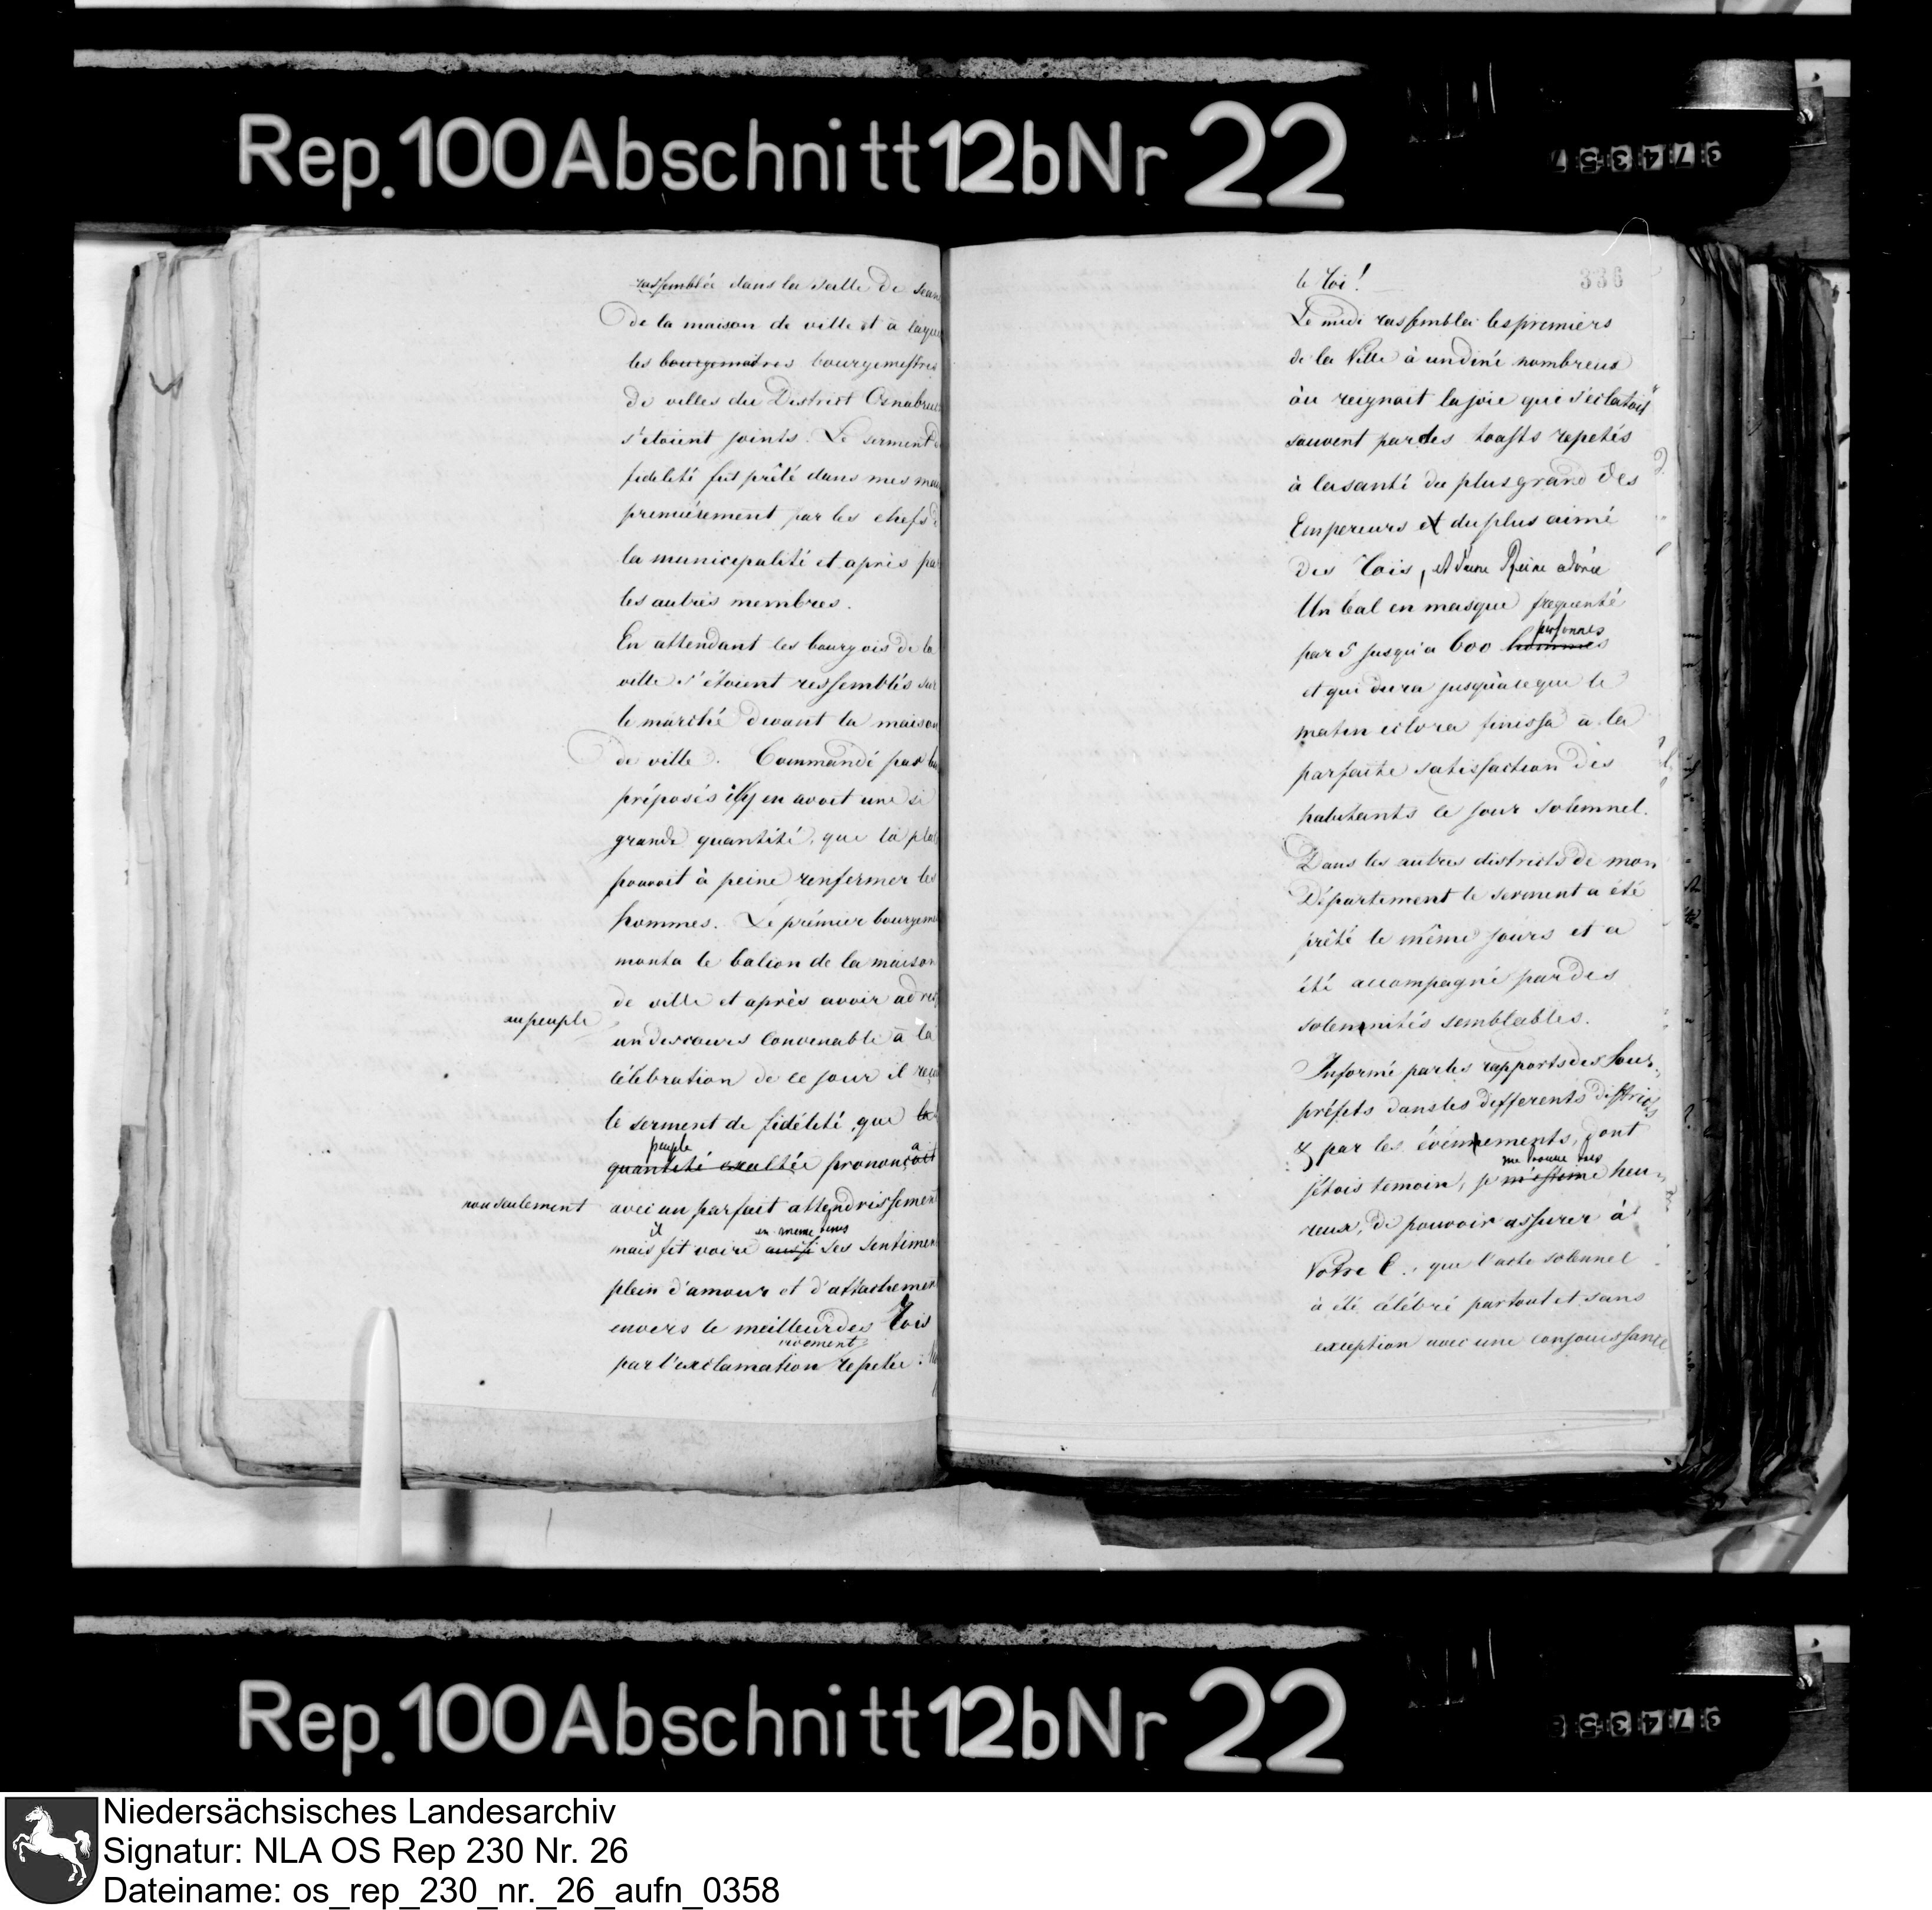 Rep. 100 Abschnitt 12b Nr 22
rassemblée dans la Salle de
de la maison de ville et à
les bourgemaitres bourgemestres
de villes du District Osnabruc
s'etoient joints. Le serment
fidelité fut prêté dans mes
premiérement par les chefs
la municipalité et après pa
les autres membres.
En attendant les bourgois de la
ville s'étoient ressemblés sur
le marché devant la maison
de ville. Commandé par
préposés il y en avoit une si
grande quantité, que la pla
pouvoit à peine renfermer les
hommes. Le prémier bourgem
monta le balcon de la maison
de ville et après avoir adres
au peuple
un discours convenable à la
célébration de ce jour il reçu
le serment de fidélité, que le
peuple a
quantité exaltée prononçoit
non seulement avec un parfait attendrissement
il en meme tems
mais fit voire aussi ses sentimen
plein d'amour et d'attachemen
envers le meilleur des Rois
vivement
par l'exclamation repetée :
336
le Roi!
Le midi rassembla les premiers
de la Ville à un diné nombreux
òu reignait la joie qui s'eclatoit
souvent par des toasts repetés
à la santé du plus grand des
Empereurs et du plus aimé
des Rois, et d'une Reine adorée
Un bal en masque frequenté
personnes
par 5 jusqu'a 600 hommes
et qui dura jusqu'à ce que le
matin eclora finissa à la
parfaite satisfaction des
habitants ce jour solemnel.
Dans les autres districts de mon
Département le serment a été
prêté le même jours et a
été accompagné par des
solemnités semblables.
Informé par les rapports des Sous-
préfets dans les differents districts
& par les événnements, dont
me trouve très
j'étois temoin, je m'estime heu-
reux, de pouvoir assurer à
Votre E. que l'acte solennel
à été célébré partout et sans
exeption avec une conjouissance
Rep. 100 Abschnitt 12b Nr 22
Niedersächsisches Landesarchiv
Signatur: NLA OS Rep 230 Nr. 26
Dateiname: os_rep_230_nr._26_aufn_0358